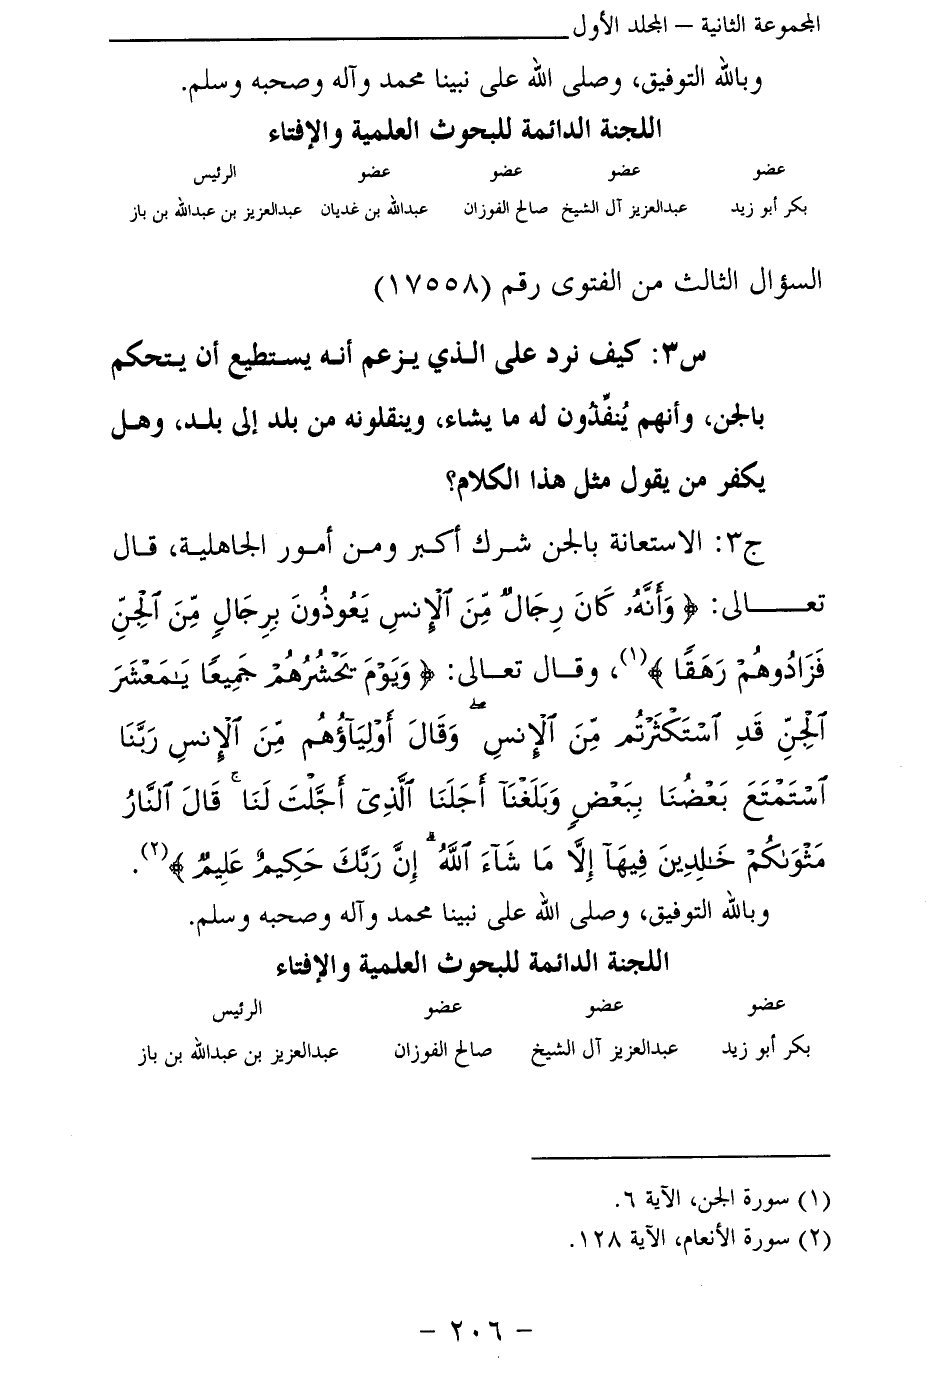 المجموعة الثانية – المجلد الأول
وبالله التوفيق، وصلى الله على نبينا محمد وآله وصحبه وسلم.
اللجنة الدائمة للبحوث العلمية والإفتاء
عضو عضو عضو عضو الرئيس
بكر أبو زيد عبدالعزيز آل الشيخ صالح الفوزان عبدالله بن غديان عبدالعزيز بن عبدالله بن باز
السؤال الثالث من الفتوى رقم (١٧٥٥٨)
س٣: كيف نرد على الذي يزعم أنه يستطيع أن يتحكم
بالجن، وأنهم يُنفِّذُون له ما يشاء، وينقلونه من بلد إلى بلد، وهل
يكفر من يقول مثل هذا الكلام؟
ج٣: الاستعانة بالجن شرك أكبر ومن أمور الجاهلية، قال
تعالى: ﴿ وَأَنَّهُۥ كَانَ رِجَالٌ مِّنَ ٱلْإِنسِ يَعُوذُونَ بِرِجَالٍ مِّنَ ٱلْجِنِّ
فَزَادُوهُمْ رَهَقًا ﴾(١)، وقال تعالى: ﴿ وَيَوْمَ يَحْشُرُهُمْ جَمِيعًا يَـٰمَعْشَرَ
ٱلْجِنِّ قَدِ ٱسْتَكْثَرْتُم مِّنَ ٱلْإِنسِ ۖ وَقَالَ أَوْلِيَآؤُهُم مِّنَ ٱلْإِنسِ رَبَّنَا
ٱسْتَمْتَعَ بَعْضُنَا بِبَعْضٍ وَبَلَغْنَآ أَجَلَنَا ٱلَّذِىٓ أَجَّلْتَ لَنَا ۚ قَالَ ٱلنَّارُ
مَثْوَىٰكُمْ خَـٰلِدِينَ فِيهَآ إِلَّا مَا شَآءَ ٱللَّهُ ۗ إِنَّ رَبَّكَ حَكِيمٌ عَلِيمٌ ﴾(٢).
وبالله التوفيق، وصلى الله على نبينا محمد وآله وصحبه وسلم.
اللجنة الدائمة للبحوث العلمية والإفتاء
عضو عضو عضو الرئيس
بكر أبو زيد عبدالعزيز آل الشيخ صالح الفوزان عبدالعزيز بن عبدالله بن باز
(١) سورة الجن، الآية ٦.
(٢) سورة الأنعام، الآية ١٢٨.
– ٢٠٦ –